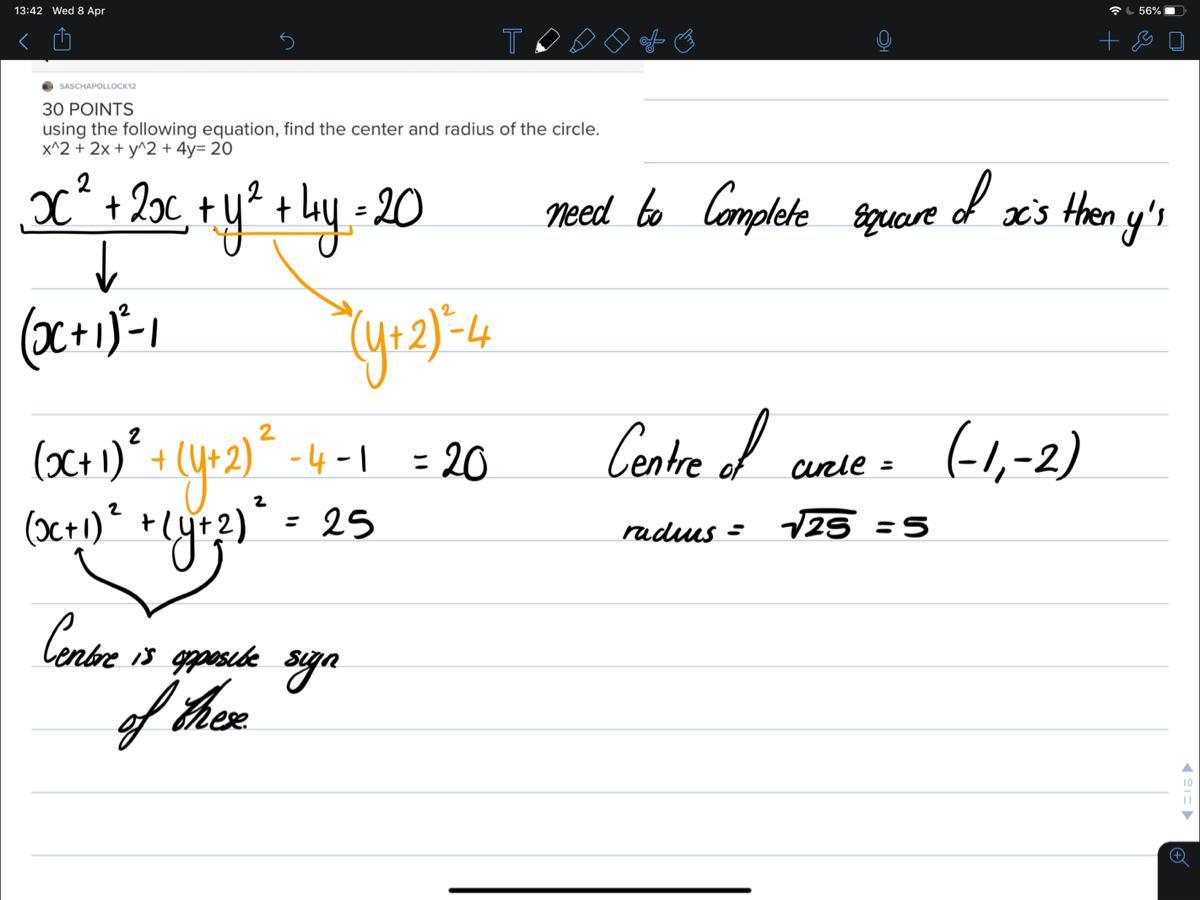 13:42 Wed 8 Apr
56%
T
SASCHAPOLLOCK12
30 POINTS
using the following equation, find the center and radius of the circle.
x^2 + 2x + y^2 + 4y= 20
x² + 2x + y² + 4y = 20 need to Complete square of x's then y's
(x+1)²-1 (y+2)²-4
(x+1)² + (y+2)² -4 -1 = 20 Centre of circle = (-1,-2)
(x+1)² + (y+2)² = 25 radius = √25 = 5
Centre is opposite sign
of these.
10
11